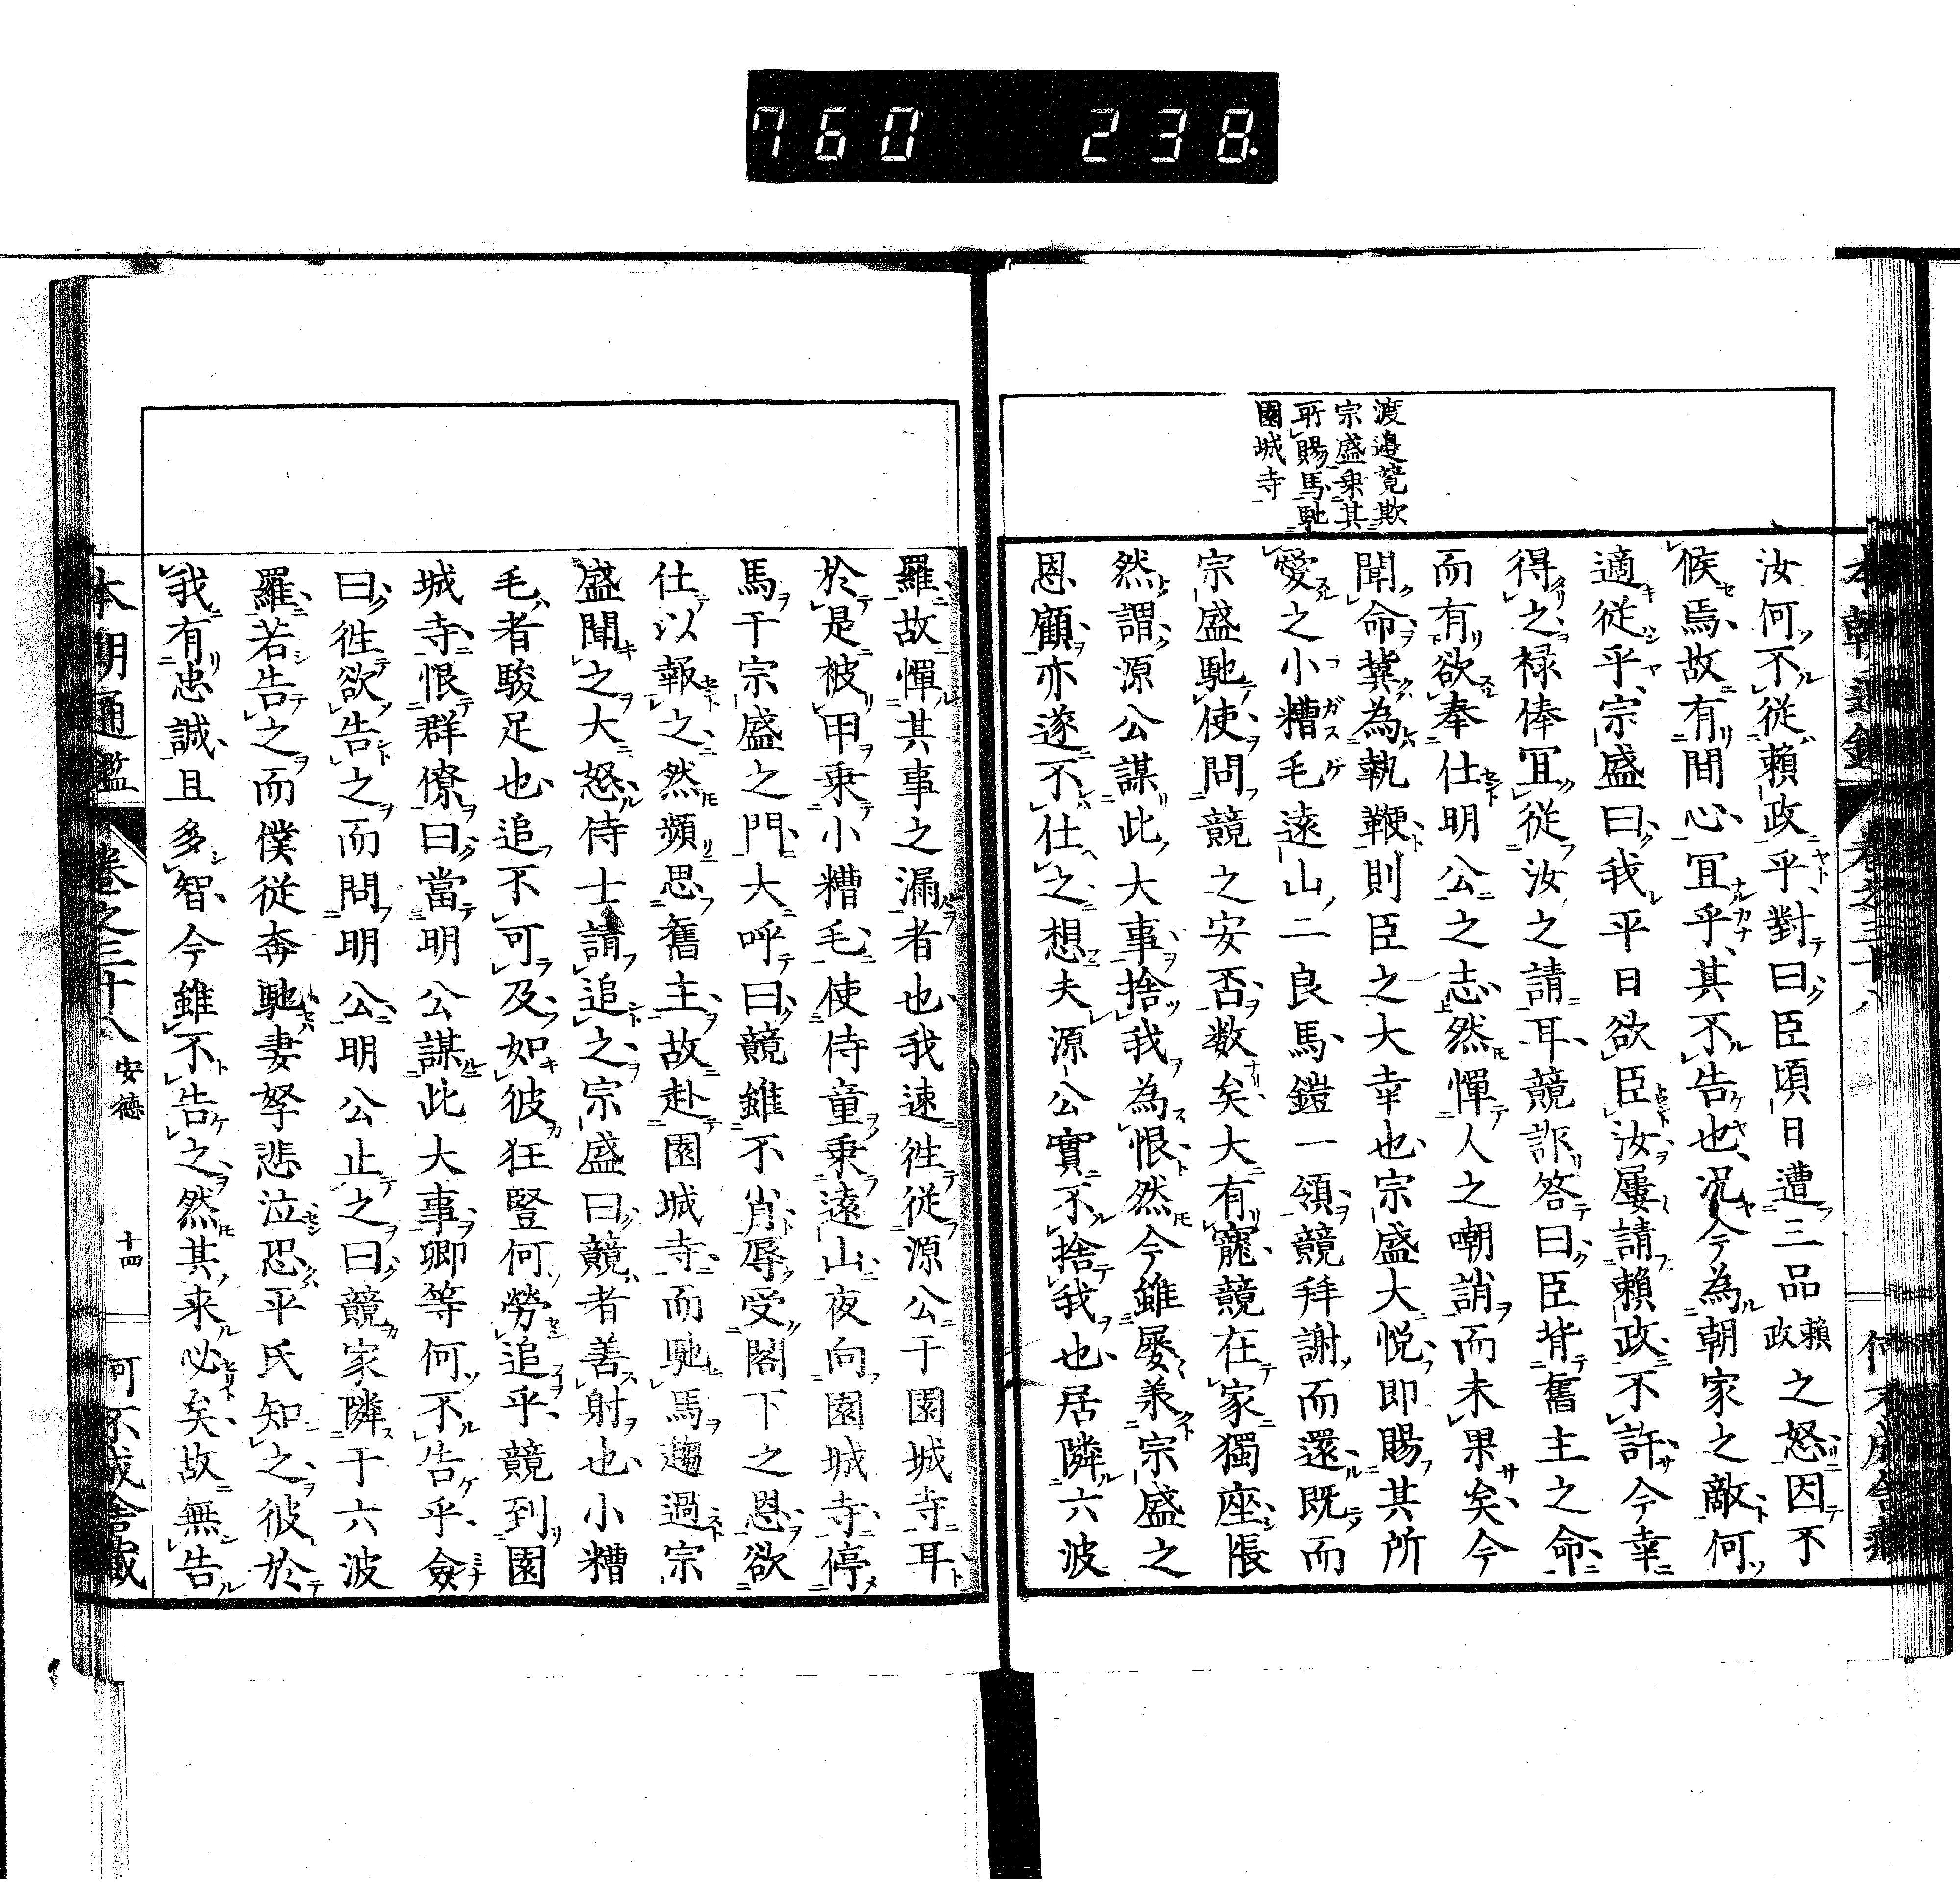 760 238.
渡邉競欺
宗盛乗其
所賜馬馳
園城寺
汝何不從賴政乎對曰臣頃日遭三品賴政之怒因不
候焉故有間心冝乎其不告也況今為朝家之敵何
適従乎宗盛曰我平日欲臣汝屢請賴政不許今幸
得之禄俸冝従汝之請耳競訴答曰臣背舊主之命
而有欲奉仕明公之志然憚人之嘲誚而未果矣今
聞命冀為執鞭則臣之大幸也宗盛大悦即賜其所
愛之小糟毛遠山二良馬鎧一領競拜謝而還既而
宗盛馳使問競之安否数矣大有寵競在家獨座悵
然謂源公謀此大事捨我為恨然今雖屡羕宗盛之
恩顧亦遂不仕之想夫源公實不捨我也居隣六波
羅故憚其事之漏者也我速徃従源公于園城寺耳
於是被甲乗小糟毛使侍童乗遠山夜向園城寺停
馬于宗盛之門大呼曰競雖不肖辱受閤下之恩欲
仕以報之然頻思舊主故赴園城寺而馳馬趨過宗
盛聞之大怒侍士請追之宗盛曰競者善射也小糟
毛者駿足也追不可及如彼狂豎何勞追乎競到園
城寺恨群僚曰當明公謀此大事卿等何不告乎僉
曰徃欲告之而問明公明公止之曰競家隣于六波
羅若告之而僕従奔馳妻孥悲泣恐平氏知之彼於
我有忠誠且多智今雖不告之然其来必矣故無告
本朝通鑑 卷之三十八 安德 十四 何不成舍藏